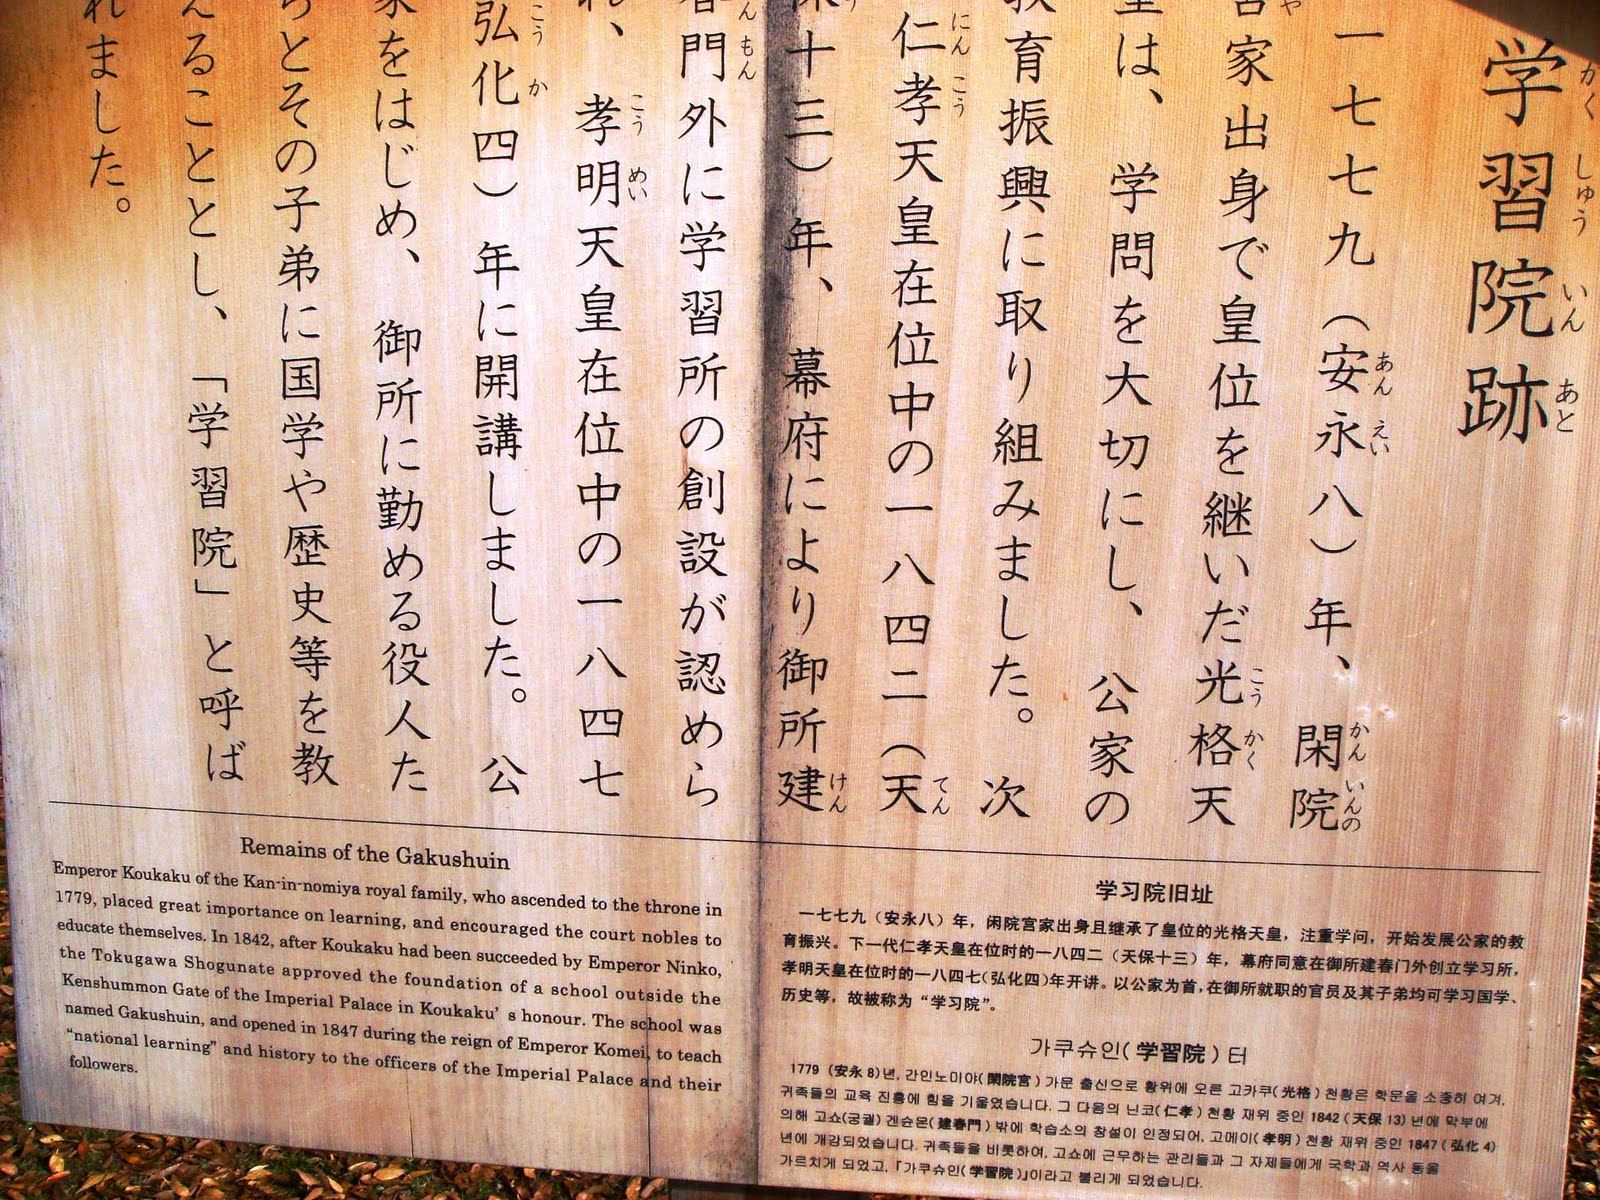 学習院跡
がくしゅういんあと
一七七九（安永八）年、閑院
あんえい かんいんの
宮家出身で皇位を継いだ光格天
や こうかく
皇は、学問を大切にし、公家の
教育振興に取り組みました。次
仁孝天皇在位中の一八四二（天
にんこう てん
保十三）年、幕府により御所建
けん
春門外に学習所の創設が認めら
んもん
れ、孝明天皇在位中の一八四七
こうめい
弘化四）年に開講しました。公
こうか
家をはじめ、御所に勤める役人た
ちとその子弟に国学や歴史等を教
えることとし、「学習院」と呼ば
れました。
Remains of the Gakushuin
Emperor Koukaku of the Kan-in-nomiya royal family, who ascended to the throne in
1779, placed great importance on learning, and encouraged the court nobles to
educate themselves. In 1842, after Koukaku had been succeeded by Emperor Ninko,
the Tokugawa Shogunate approved the foundation of a school outside the
Kenshummon Gate of the Imperial Palace in Koukaku's honour. The school was
named Gakushuin, and opened in 1847 during the reign of Emperor Komei, to teach
"national learning" and history to the officers of the Imperial Palace and their
followers.
学习院旧址
一七七九（安永八）年，闲院宫家出身且继承了皇位的光格天皇，注重学问，开始发展公家的教
育振兴。下一代仁孝天皇在位时的一八四二（天保十三）年，幕府同意在御所建春门外创立学习所，
孝明天皇在位时的一八四七（弘化四）年开讲。以公家为首，在御所就职的官员及其子弟均可学习国学、
历史等，故被称为“学习院”。
가쿠슈인( 学習院 ) 터
1779 (安永 8)년, 간인노미야( 閑院宮 ) 가문 출신으로 황위에 오른 고카쿠( 光格 ) 천황은 학문을 소중히 여겨,
귀족들의 교육 진흥에 힘을 기울였습니다. 그 다음의 닌코( 仁孝 ) 천황 재위 중인 1842 ( 天保 13) 년에 막부에
의해 고쇼(궁궐) 겐슌몬( 建春門 ) 밖에 학습소의 창설이 인정되어, 고메이( 孝明 ) 천황 재위 중인 1847 ( 弘化 4)
년에 개강되었습니다. 귀족들을 비롯하여, 고쇼에 근무하는 관리들과 그 자제들에게 국학과 역사 등을
가르치게 되었고, 「가쿠슈인( 学習院 )」이라고 불리게 되었습니다.